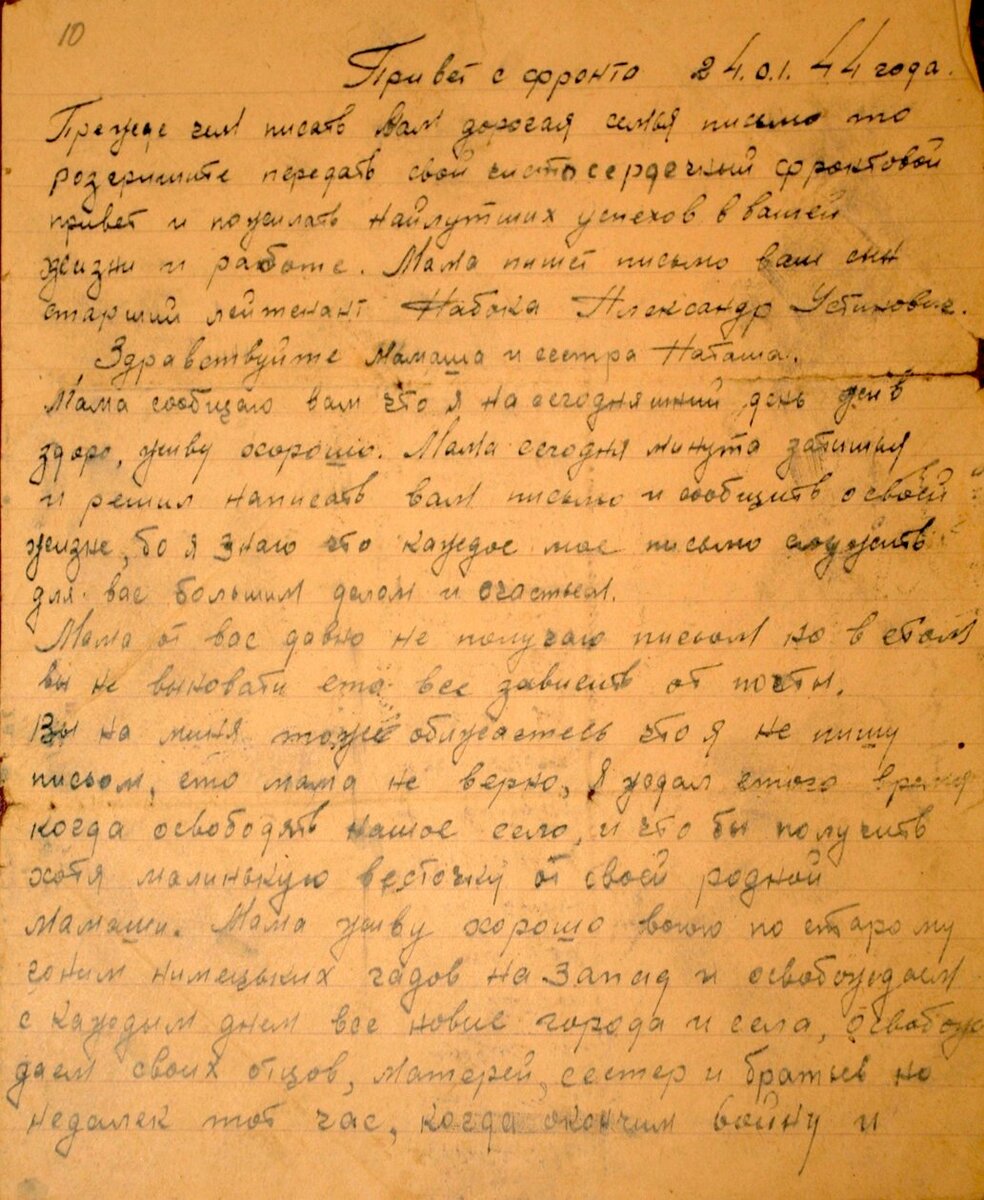 10
Привет с фронто 24.01.44 года.
Прежде чем писать Вам дорогая семья письмо то
розгришите передать свой чистосердечный фронтовой
привет и пожилать найлутших успехов в вашей
жизни и работе. Мама пишет письмо ваш сын
старший лейтенант Набока Александр Устинович.
Здравствуйте мамаша и сестра Наташа.
Мама сообщаю вам что я на сегодняшний день жив
здоро, живу хорошо. Мама сегодня минута затишья
и решил написать вам письмо и сообщить о своей
жизне, бо я знаю что каждое мое письмо служить
для вас большим делом и счастьем.
Мама от вас давно не получаю письом но в етом
вы не выновати ето все зависить от почты.
Вы на миня тоже обижаетесь что я не пишу
письом, ето мама не верно, я ждал етого время
когда освободять нашое село, и что бы получить
хотя малинькую весточку от своей родной
мамаши. Мама живу хорошо воюю по старому
гоним нимецьких гадов на Запад и освобождаем
с каждым днем все новие города и села, освобож
даем своих отцов, матерей, сестер и братьев но
недалек тот час, когда окончим войну и